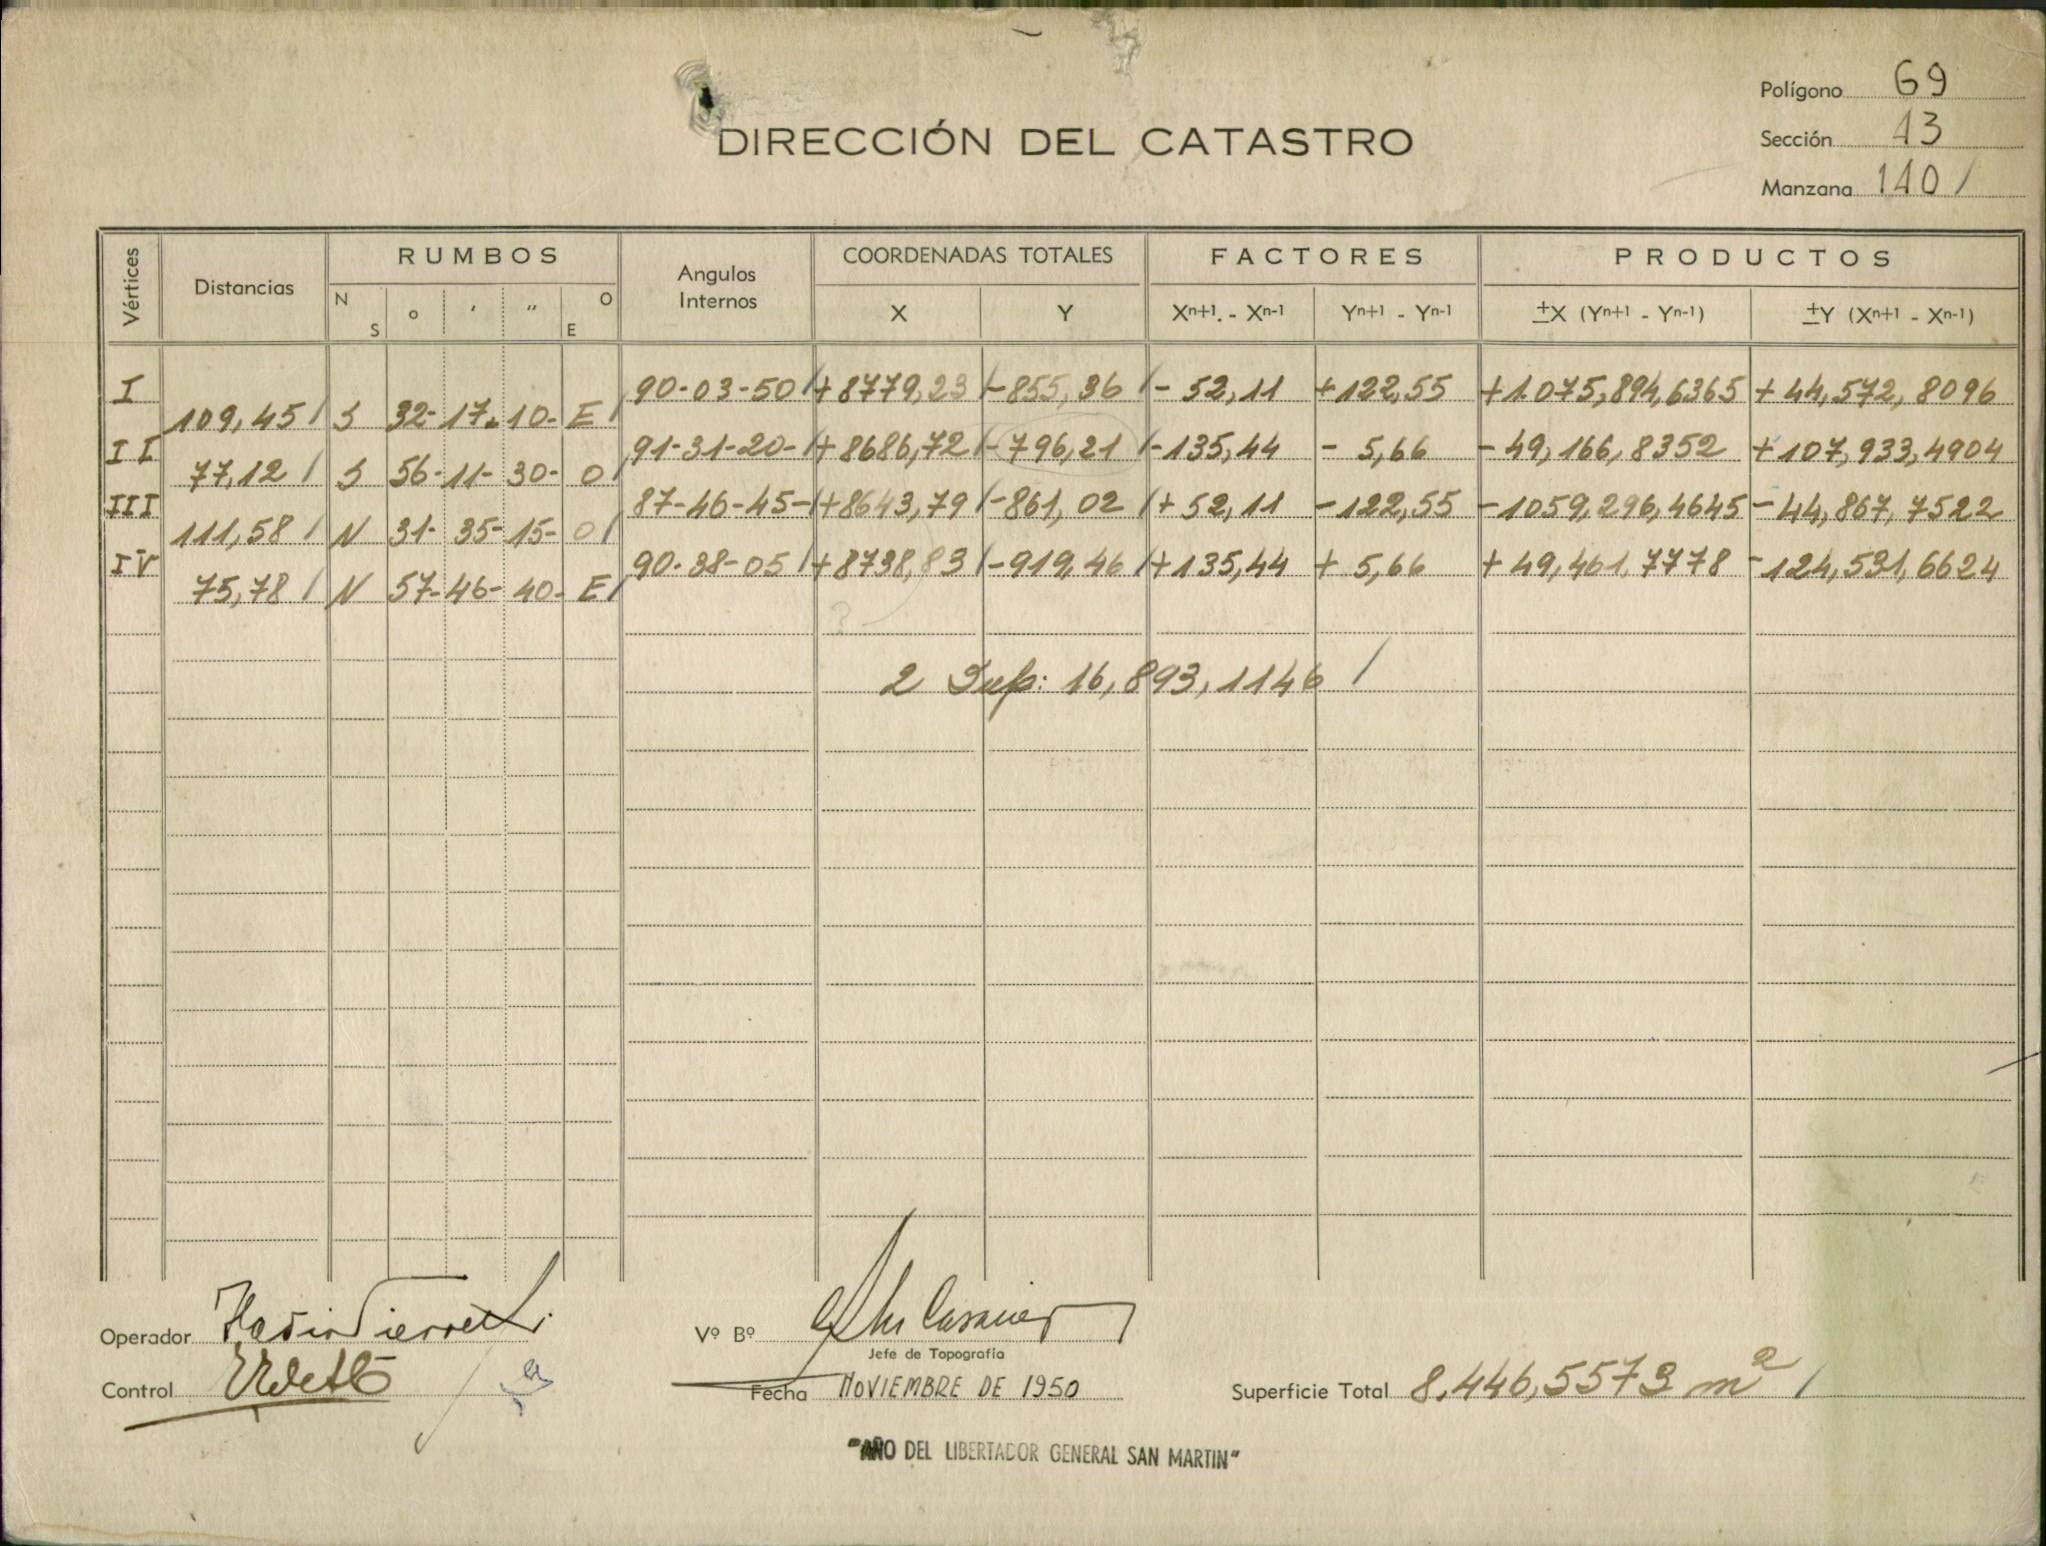 Polígono 69
DIRECCIÓN DEL CATASTRO
Sección 13
Manzana 110 /
Vértices Distancias RUMBOS Angulos Internos COORDENADAS TOTALES FACTORES PRODUCTOS
N S o ' " O E X Y Xⁿ⁺¹. - Xⁿ⁻¹ Yⁿ⁺¹ - Yⁿ⁻¹ ±X (Yⁿ⁺¹ - Yⁿ⁻¹) ±Y (Xⁿ⁺¹ - Xⁿ⁻¹)
I 90-03-50 / +8779,23 / -855,36 / - 52,11 +122,55 +1.075,894,6365 + 44,572,8096
109,45 / S 32- 17. 10- E /
II 91-31-20- / +8686,72 / -796,21 / -135,44 - 5,66 - 49,166,8352 +107,933,4904
77,12 / S 56- 11- 30- O /
III 87-46-45- / +8643,79 / -861,02 / + 52,11 -122,55 -1059,296,4645 - 44,867,7522
111,58 / N 31- 35- 15- O /
IV 90-38-05 / +8738,83 / -919,46 / +135,44 + 5,66 + 49,461,7778 -124,531,6624
75,78 / N 57- 46- 40- E /
2 Sup: 16,893,1146 /
Operador
Vº Bº
Jefe de Topografía
Control
Fecha NOVIEMBRE DE 1950
Superficie Total 8.446,5573 m² /
"AÑO DEL LIBERTADOR GENERAL SAN MARTIN"